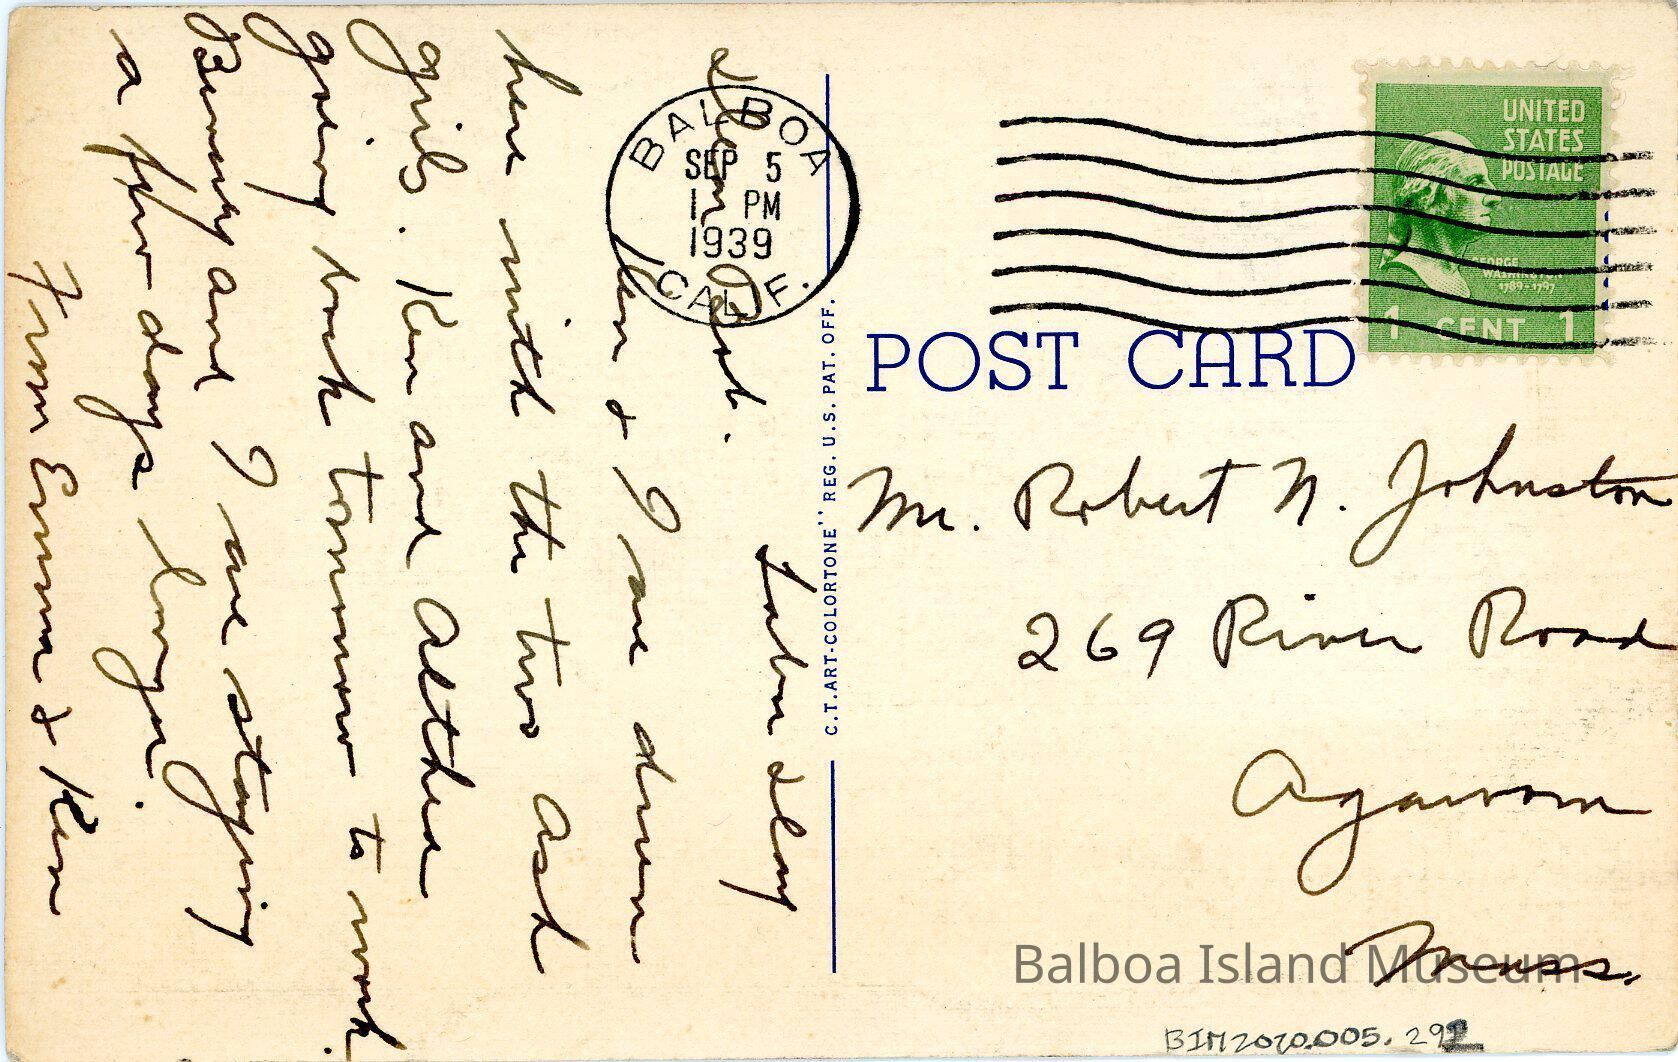 Labor Day
Dear Bob.
Ken & I are down
here with the two Ash
girls. Ken and Althea
going back tomorrow to work.
Benny and I are staying
a few days longer.
From Emma & Ken
BALBOA
SEP 5
1 PM
1939
CALIF.
UNITED
STATES
POSTAGE
GEORGE
WASHINGTON
1789-1797
1 CENT 1
POST CARD
C.T. ART-COLORTONE" REG. U.S. PAT. OFF.
Mr. Robert N. Johnston
269 River Road
Agawam
Mass.
Balboa Island Museum
BIM2020.005.292